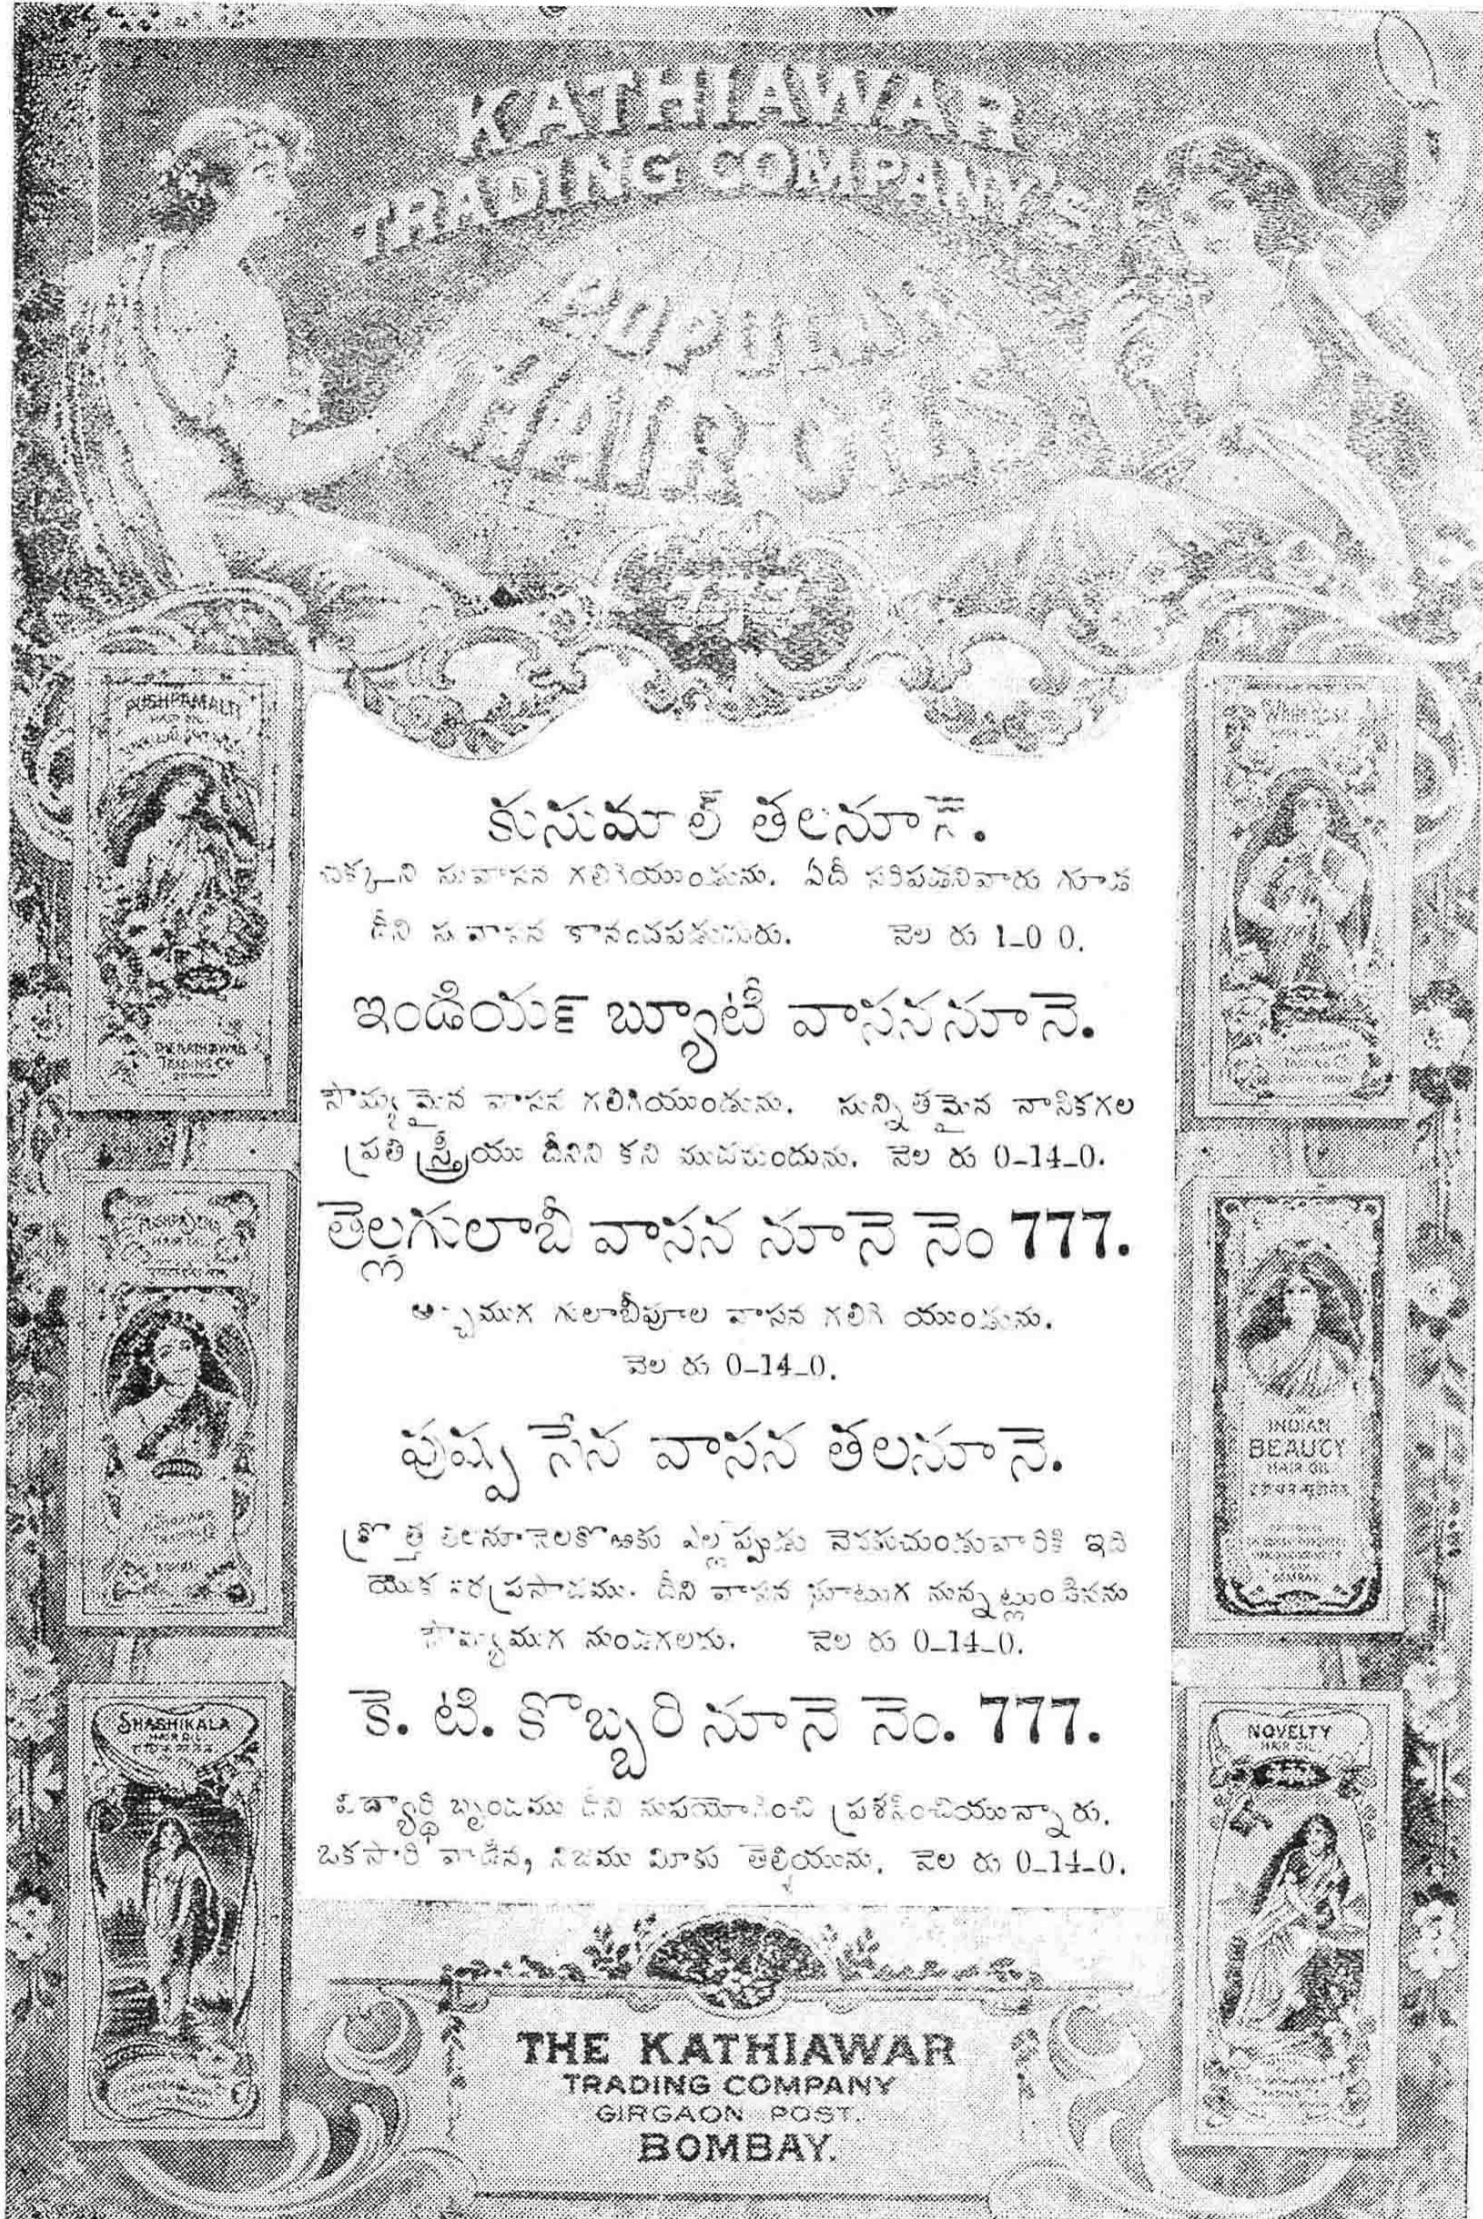 KATHIAWAR
TRADING COMPANY'S
POPULAR
HAIR OILS
777
PUSHPAMALTI
HAIR OIL
KATHIAWAR
TRADING Co
White Rose
కుసుమాల్ తలనూనె.
చిక్కని సువాసన గలిగియుండును. ఏదీ సరిపడనివారు గూడ
దీని సువాసన కానందపడుదురు. వెల రు 1_0 0.
ఇండియ౯ బ్యూటీ వాసననూనె.
సౌమ్యమైన వాసన గలిగియుండును. సున్నితమైన నాసికగల
ప్రతి స్త్రీయు దీనిని కని ముదమందును. వెల రు 0_14_0.
తెల్లగులాబీ వాసన నూనె నెం 777.
అచ్చముగ గులాబీపూల వాసన గలిగి యుండును.
వెల రు 0_14_0.
పుష్ప సేన వాసన తలనూనె.
క్రొత్త తలనూనెలకొఱకు ఎల్లప్పుడు వెదకుచుండువారికి ఇది
యొక వరప్రసాదము. దీని వాసన ఘాటుగ నున్నట్లుండినను
సౌమ్యముగ నుండగలదు. వెల రు 0_14_0.
కె. టి. కొబ్బరి నూనె నెం. 777.
విద్యార్థి బృందము దీని నుపయోగించి ప్రశసించియున్నారు.
ఒకసారి వాడిన, నిజము మీకు తెల్ళియును. వెల రు 0_14_0.
INDIAN
BEAUTY
HAIR OIL
BOMBAY
SHASHIKALA
HAIR OIL
NOVELTY
HAIR OIL
THE KATHIAWAR
TRADING COMPANY
GIRGAON POST.
BOMBAY.